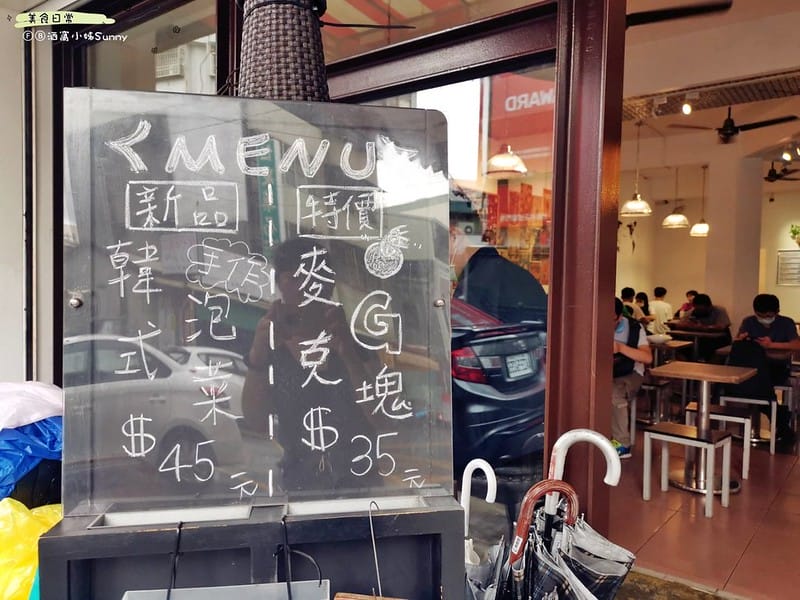 美食日常
ⒻⒷ酒窩小姊Sunny
WARD
<MENU>
新品
韓式
手作
泡菜
$45元
特價
麥克
G塊
$35元